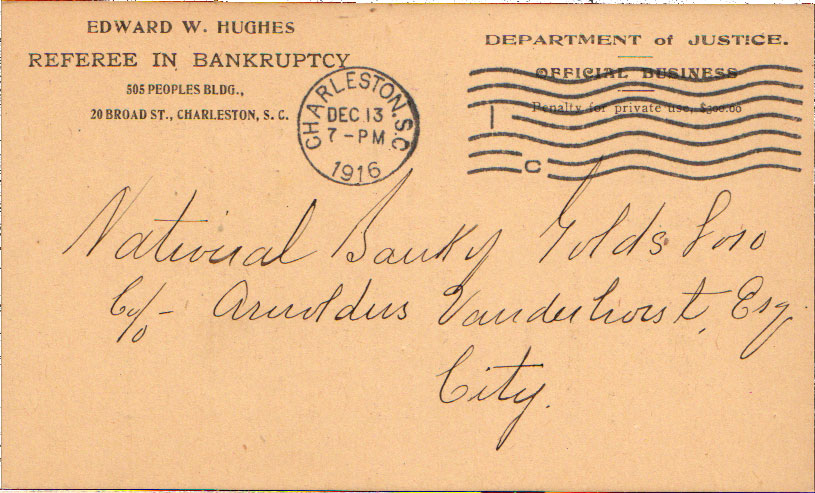 EDWARD W. HUGHES
REFEREE IN BANKRUPTCY
505 PEOPLES BLDG.,
20 BROAD ST., CHARLESTON, S. C.
CHARLESTON, S.C.
DEC 13
7-PM
1916
DEPARTMENT of JUSTICE.
OFFICIAL BUSINESS
Penalty for private use, $300.00
1
C
National Bank of Goldsboro
c/o - Arnoldus Vanderhorst, Esq.
City.